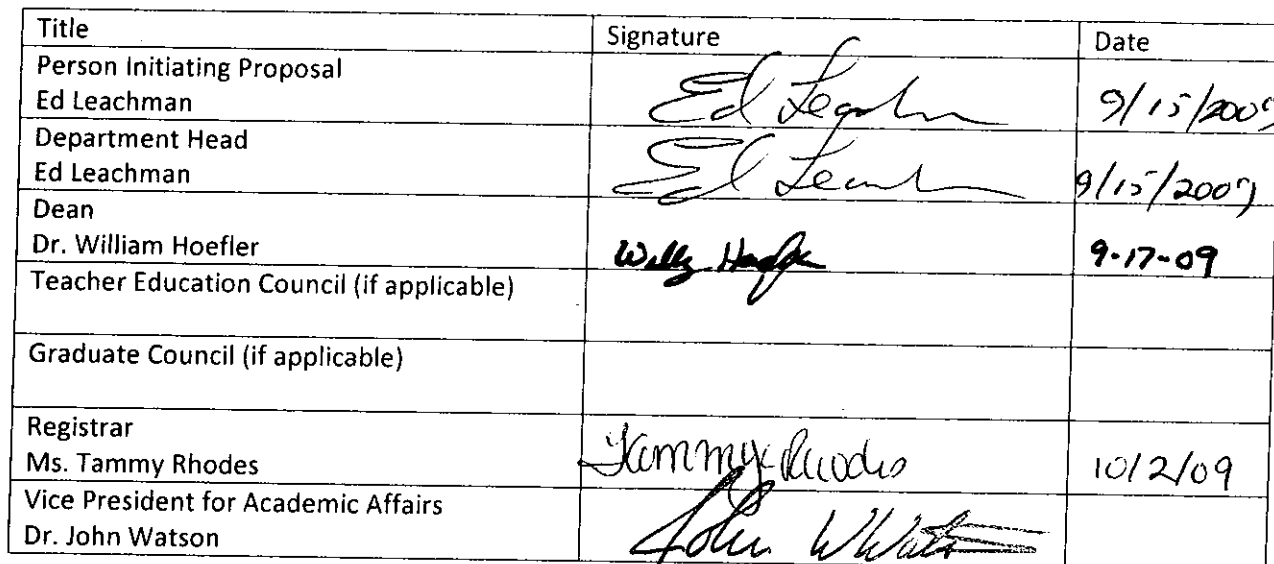 Title Signature Date
Person Initiating Proposal
Ed Leachman Ed Leachman 9/15/2009
Department Head
Ed Leachman Ed Leachman 9/15/2009
Dean
Dr. William Hoefler 9-17-09
Teacher Education Council (if applicable)
Graduate Council (if applicable)
Registrar
Ms. Tammy Rhodes Tammy Rhodes 10/2/09
Vice President for Academic Affairs
Dr. John Watson John W Watson